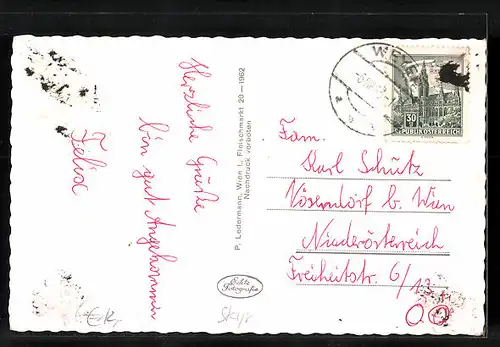 Herzliche Grüße
bin gut Angekommen
Felix
P. Ledermann, Wien I., Fleischmarkt 20 — 1962
Nachdruck verboten
Echte
Fotografie
WIEN
30
REPUBLIK ÖSTERREICH
Fam.
Karl Schütz
Vösendorf b. Wien
Niederösterreich
Freiheitstr. 6/13